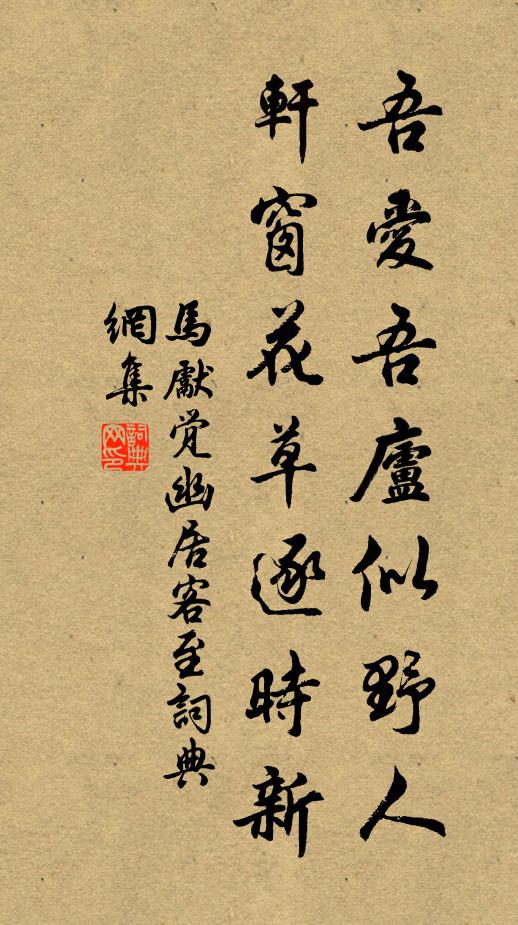 吾愛吾廬似野人
軒窗花草逐時新
馬獻覚幽居客至詞典
網集
詞典网印